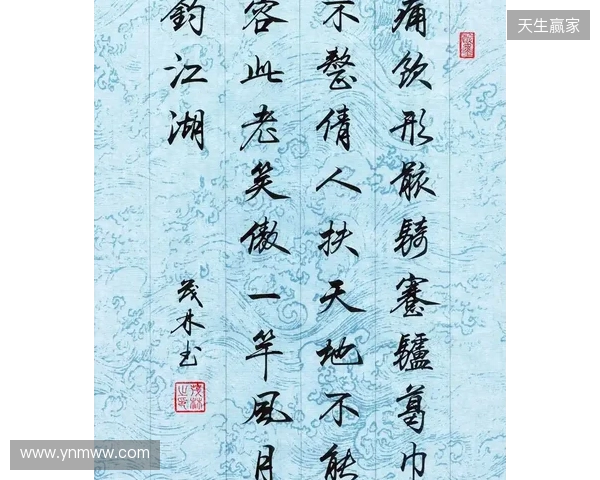 天生赢家
痛饮形骸騎蹇驢葛巾
不整倩人扶天地不能
容此老笑傲一竿風月
釣江湖
茂林书
www.ynmww.com